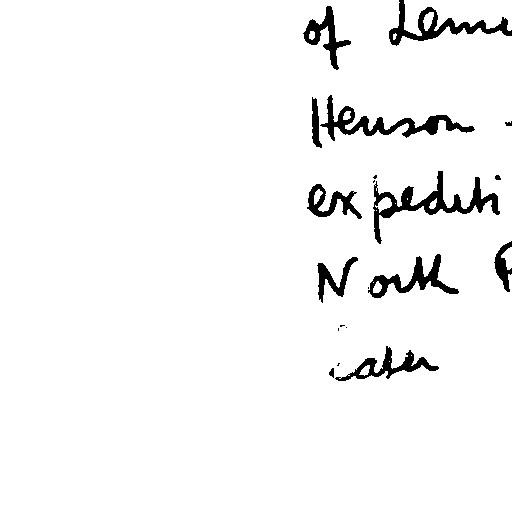 of
Henson
expediti
North
later